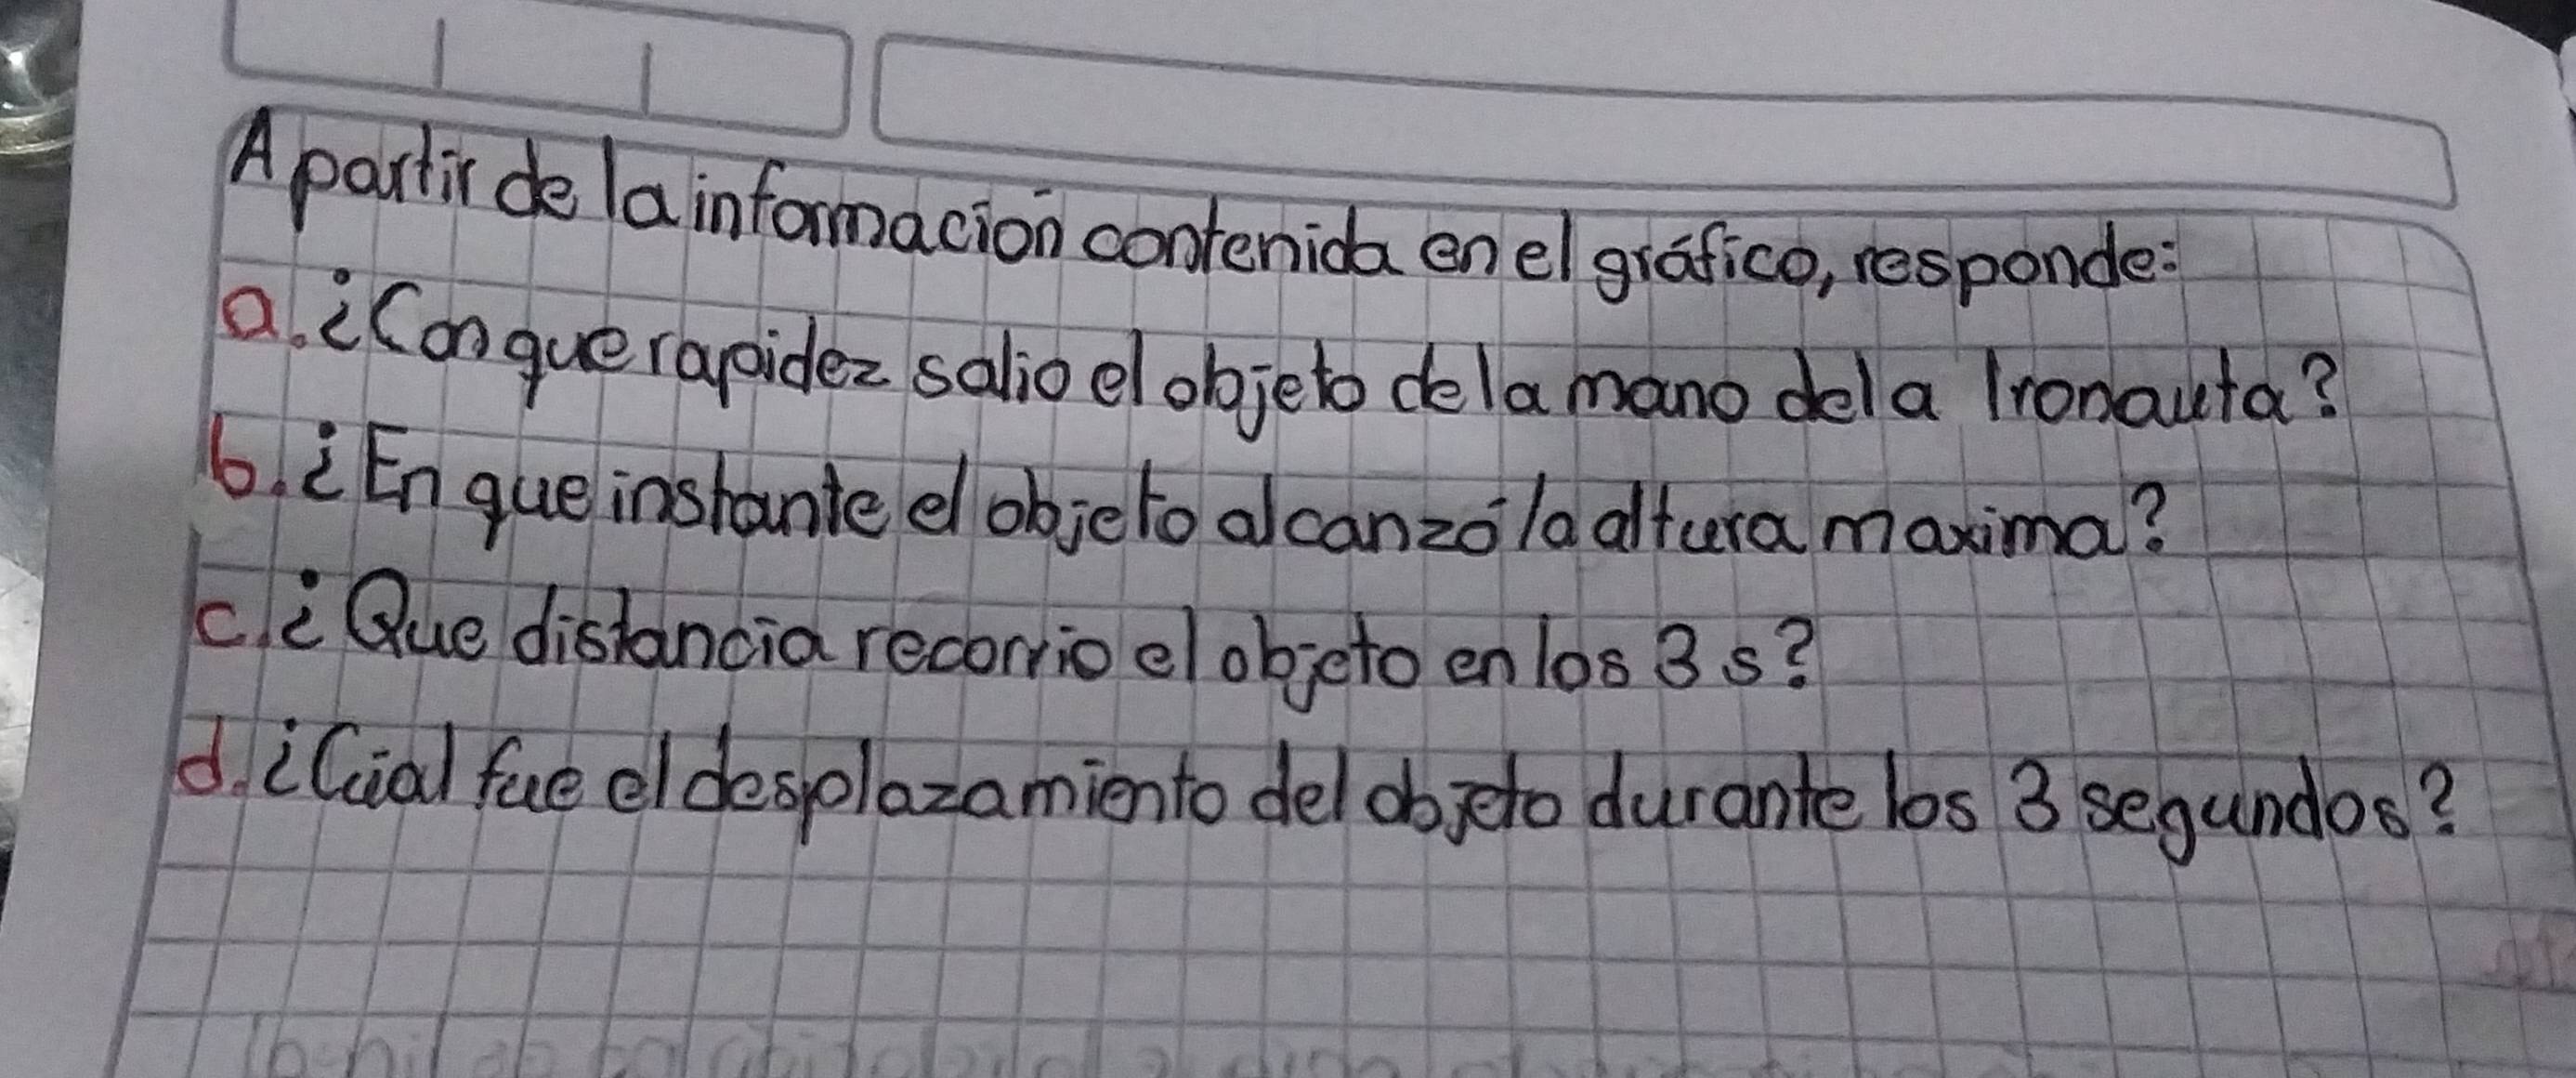 A partir de la información contenida en el gráfico, responde:
a. ¿Con que rapidez salio el objeto de la mano del a Ironauta?
b. ¿En que instante el objeto alcanzó la altura maxima?
c. ¿Que distancia recorrio el objeto en los 3 s?
d. ¿Cuál fue el desplazamiento del objeto durante los 3 segundos?